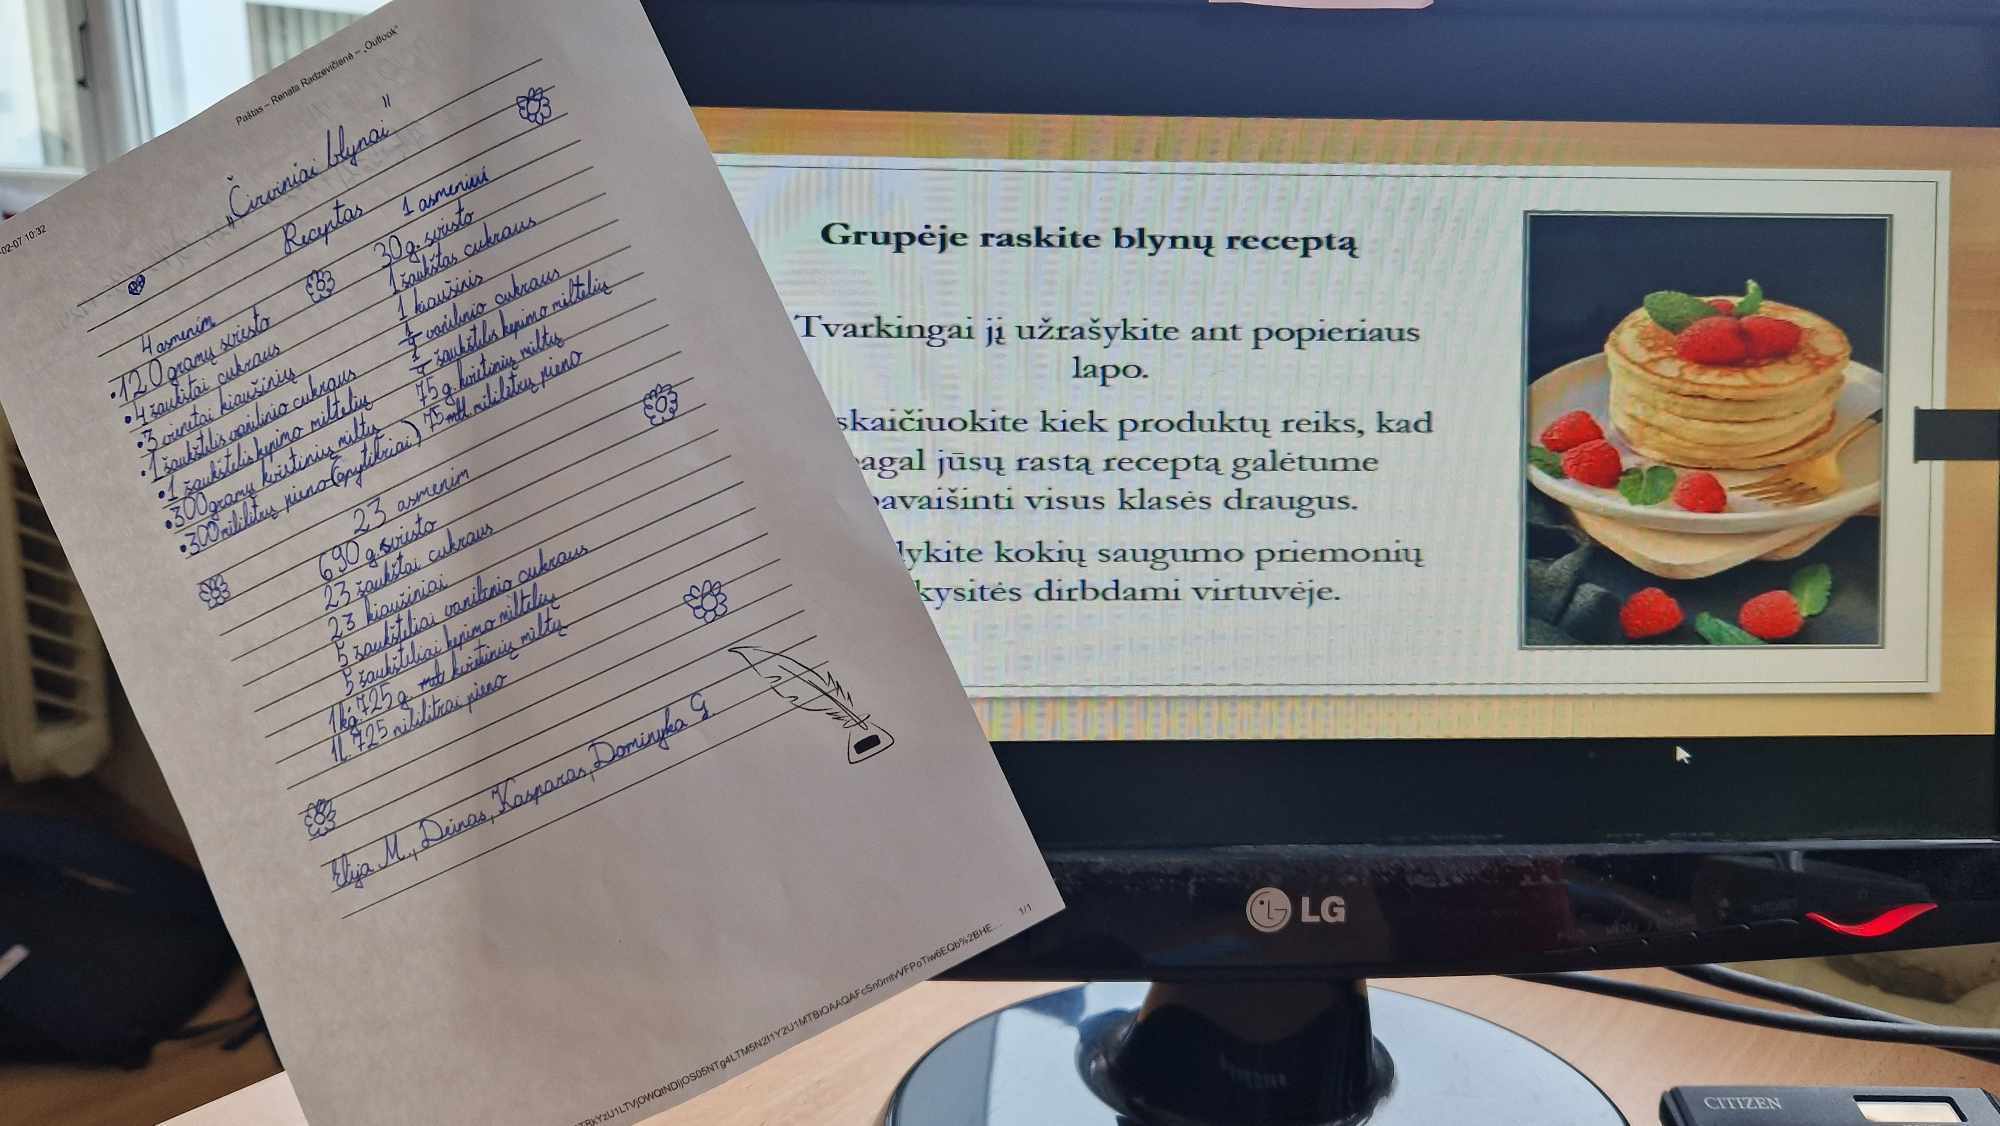 Paštas – Renata Radzevičienė – „Outlook“
02-07 10:32
„Čirviniai blynai"
Receptas
4 asmenim
• 120 gramų sviesto
• 4 šaukštai cukraus
• 3 vienetai kiaušinių
• 1 šaukštelis vanilinio cukraus
• 1 šaukštelis kepimo miltelių
• 300 gramų kvietinių miltų
• 300 mililitrų pieno (apytikriai)
1 asmeniui
30 g. sviesto
1 šaukštas cukraus
1 kiaušinis
1/4 vanilinio cukraus
1/4 šaukštelis kepimo miltelių
75 g. kvietinių miltų
75 mililitrų pieno
23 asmenim
690 g. sviesto
23 šaukštai cukraus
23 kiaušiniai
5 šaukšteliai vanilinio cukraus
5 šaukšteliai kepimo miltelių
1 kg. 725 g. kvietinių miltų
1 l. 725 mililitrai pieno
Elija M., Deinas, Kasparas, Dominyka G.
1/1
Grupėje raskite blynų receptą
Tvarkingai jį užrašykite ant popieriaus
lapo.
skaičiuokite kiek produktų reiks, kad
agal jūsų rastą receptą galėtume
avaišinti visus klasės draugus.
lykite kokių saugumo priemonių
kysitės dirbdami virtuvėje.
LG
CITIZEN